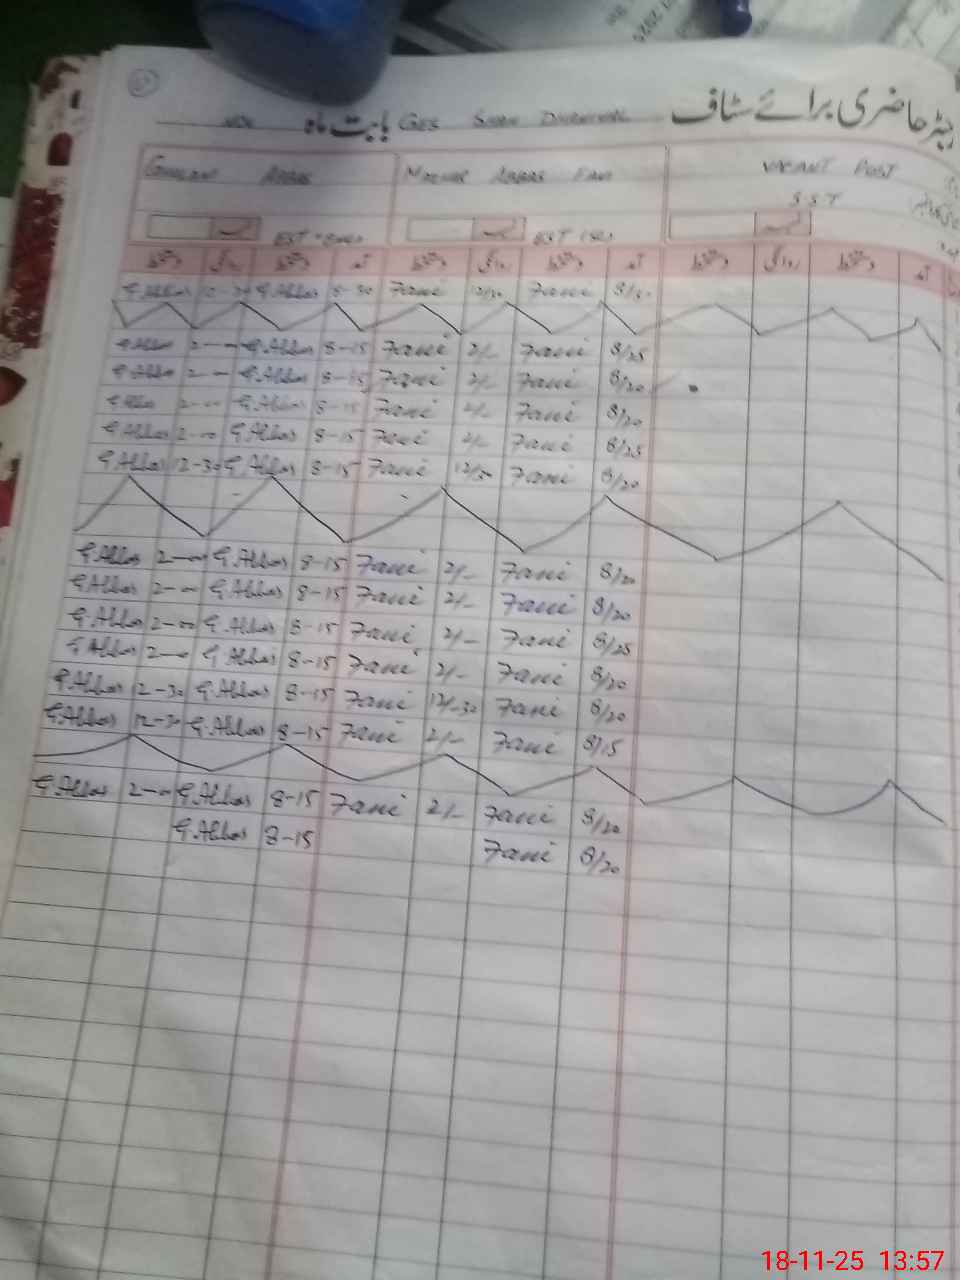 رجسٹر حاضری برائے سٹاف بابت ماہ Nov GES Shah Dhunial
Ghulam Abbas Mazhar Abbas Fani Vacant Post
S.S.T
EST
دستخط روانگی دستخط آمد دستخط روانگی دستخط آمد دستخط روانگی دستخط آمد
G.Abbas G.Abbas 8-30 Fani 12/30 Fani
G.Abbas 2-00 G.Abbas 8-15 Fani 2/- Fani 8/25
G.Abbas 2-00 G.Abbas 8-15 Fani 2/- Fani 8/20
G.Abbas 2-00 G.Abbas 8-15 Fani 2/- Fani 8/20
G.Abbas 2-00 G.Abbas 8-15 Fani 2/- Fani 8/25
G.Abbas 12-30 G.Abbas 8-15 Fani 12/30 Fani 8/20
G.Abbas 2-00 G.Abbas 8-15 Fani 2/- Fani 8/20
G.Abbas 2-00 G.Abbas 8-15 Fani 2/- Fani 8/20
G.Abbas 2-00 G.Abbas 8-15 Fani 2/- Fani 8/25
G.Abbas 2-00 G.Abbas 8-15 Fani 2/- Fani 8/20
G.Abbas 12-30 G.Abbas 8-15 Fani 12/-30 Fani 8/20
G.Abbas 12-30 G.Abbas 8-15 Fani 2/- Fani 8/15
G.Abbas 2-00 G.Abbas 8-15 Fani 2/- Fani 8/20
G.Abbas 8-15 Fani 8/20
18-11-25 13:57